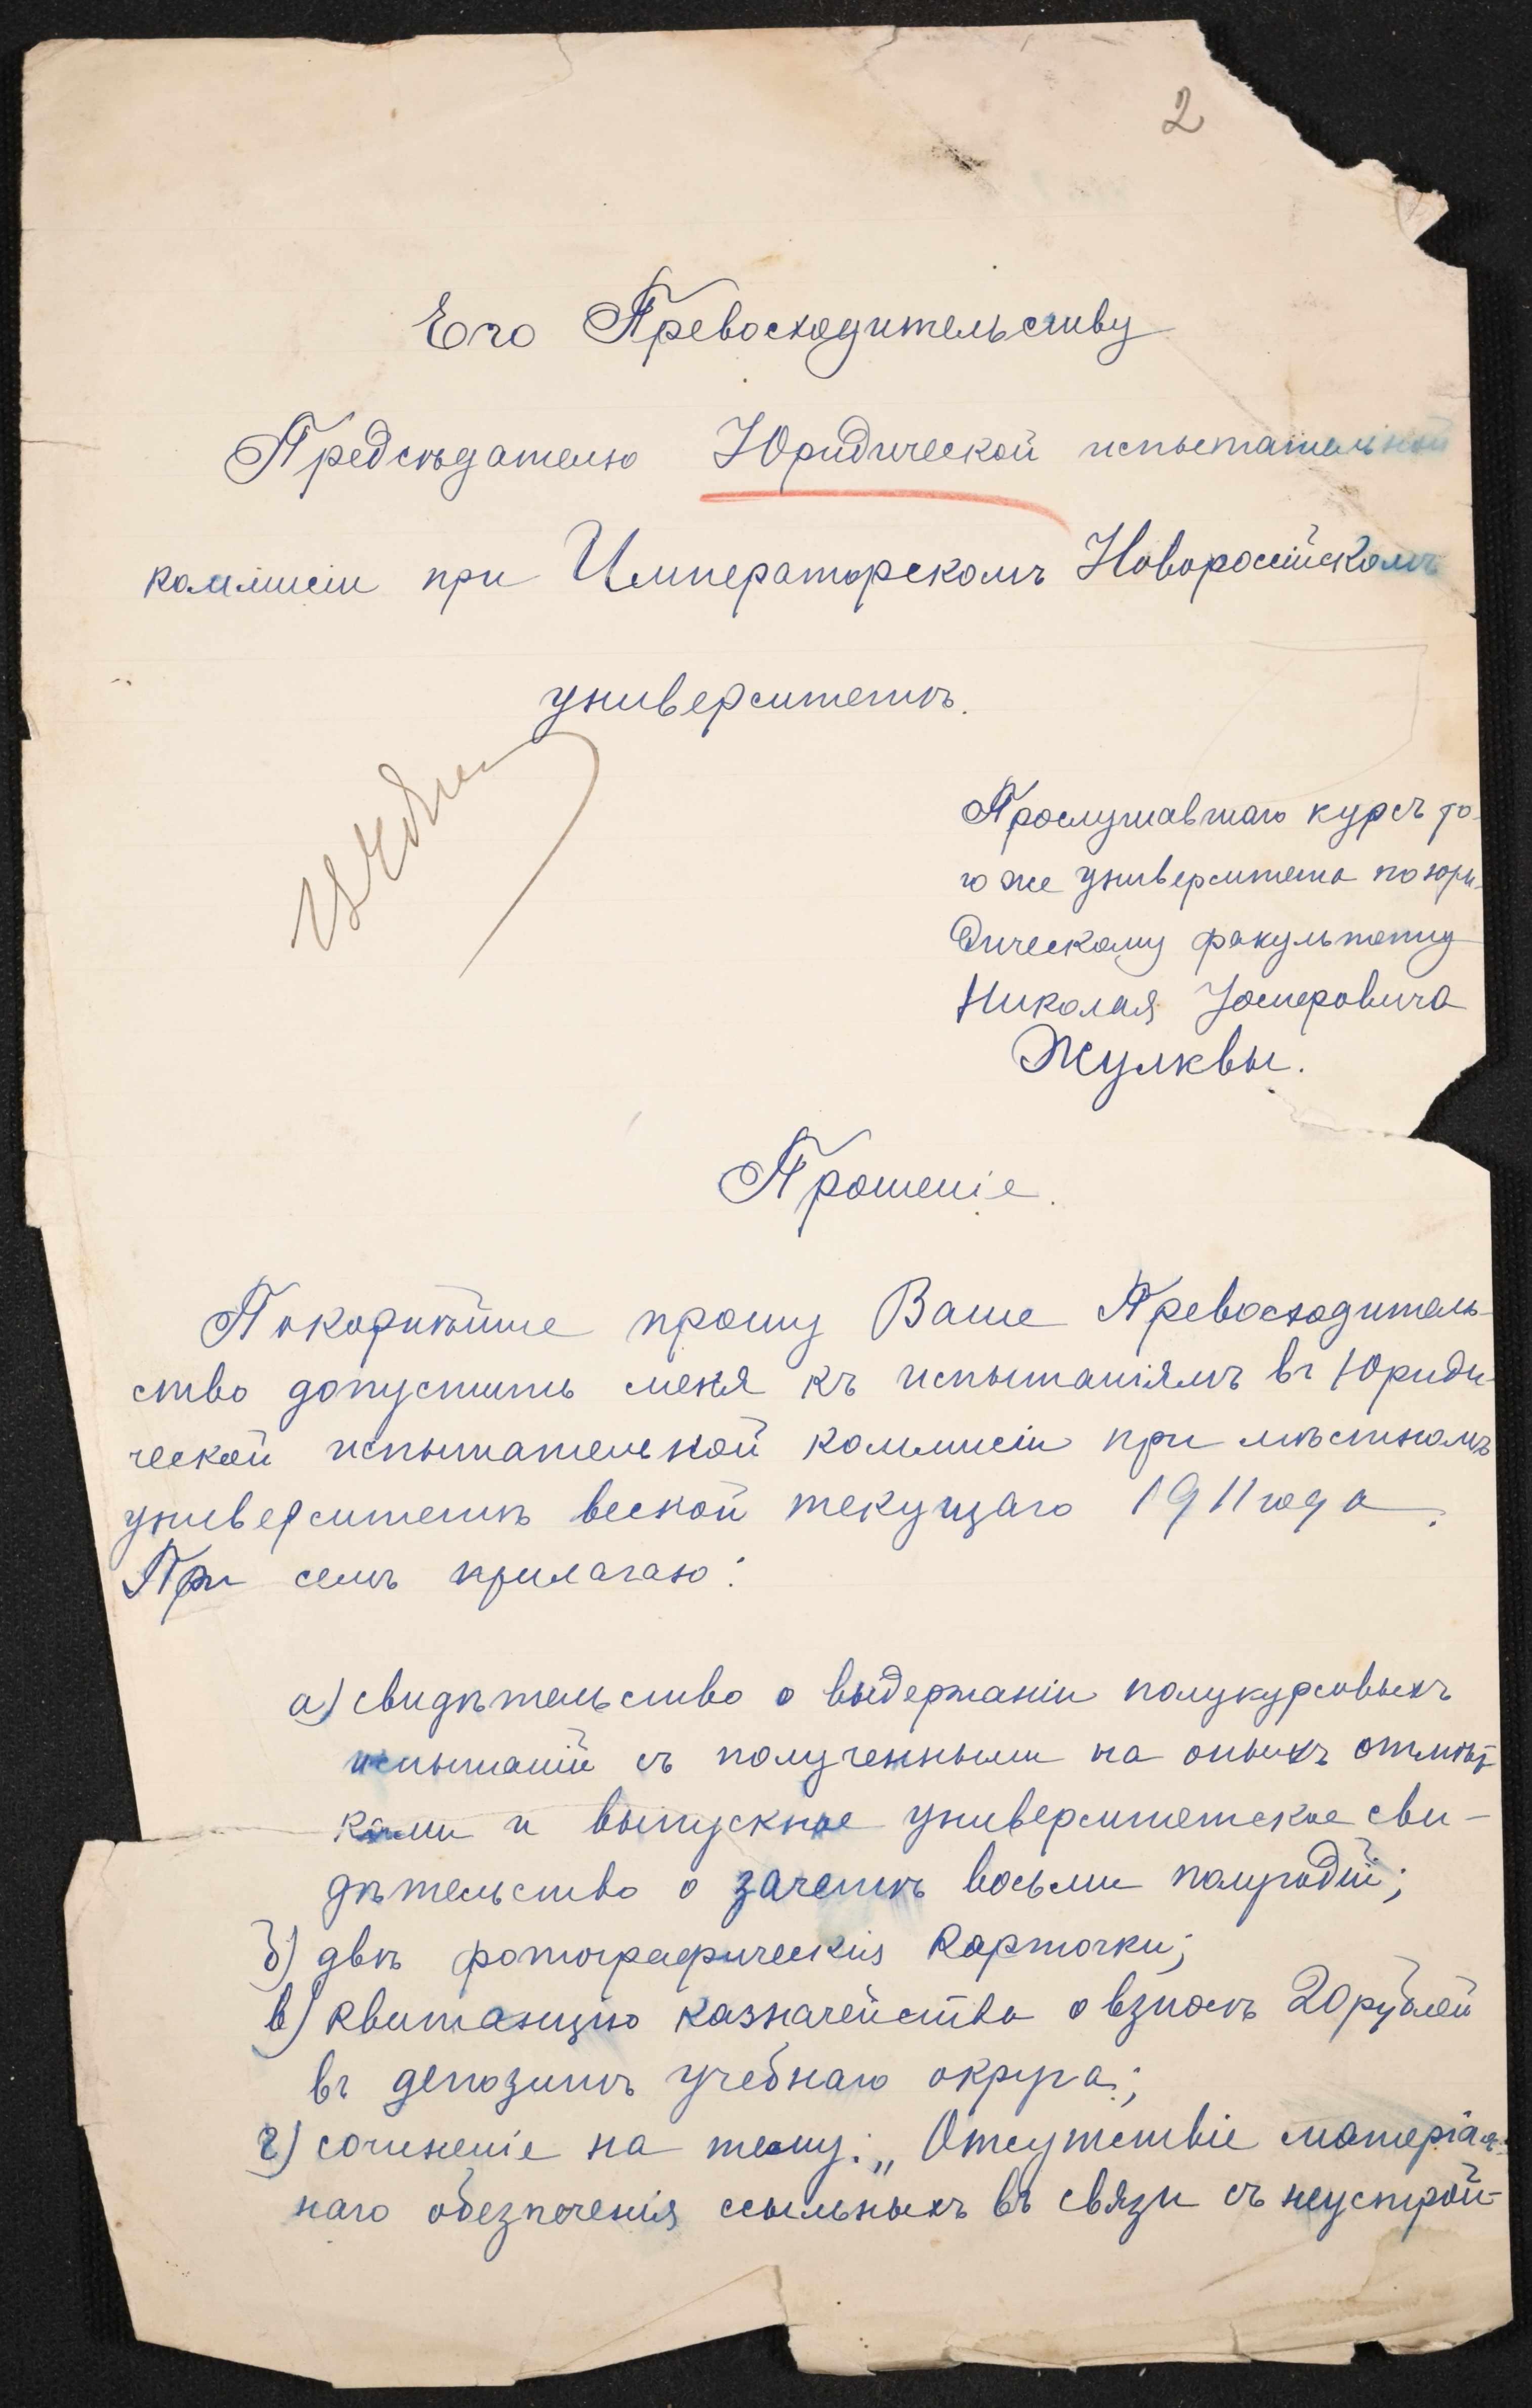 2
Его Превосходительству
Предсѣдателю Юридической испытательной
коммисіи при Императорскомъ Новоросійскомъ
университетѣ.
Прослушавшаго курсъ то-
го же университета по юри-
дическому факультету
Николая Іосифовича
Жулквы.
Прошеніе.
Покорнѣйше прошу Ваше Превосходитель-
ство допустить меня къ испытаніямъ въ Юриди-
ческой испытательной коммисіи при мѣстномъ
университетѣ весной текущаго 1911 года.
При семъ прилагаю:
а) свидѣтельство о выдержаніи полукурсовыхъ
испытаній съ полученными на оныхъ отмѣт-
ками и выпускное университетское сви-
дѣтельство о зачетѣ восьми полугодій;
б) двѣ фотографическія карточки;
в) квитанцію казначейства о взносѣ 20 рублей
въ депозитъ учебнаго округа;
г) сочиненіе на тему: „Отсутствіе матеріаль-
наго обезпеченія ссыльныхъ въ связи съ неустрой-